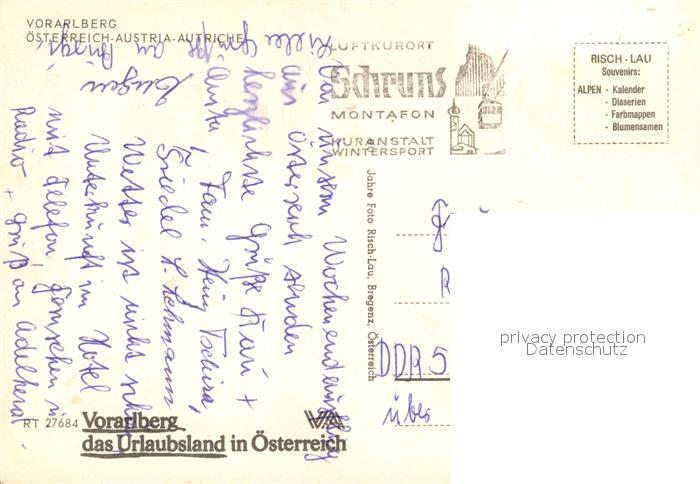 VORARLBERG
ÖSTERREICH-AUSTRIA-AUTRICHE
LUFTKURORT
Schruns
MONTAFON
KURANSTALT
WINTERSPORT
RISCH-LAU
Souvenirs:
ALPEN - Kalender
- Diaserien
- Farbmappen
- Blumensamen
Von unserem Wochenendausflug
aus Österreich senden
herzlichste Grüße Kurti +
Fam. Heinz
Friedel L. Lehmann
Wetter ist nicht schön
Unterkunft im Hotel
mit Telefon, Fernsehen u.
Radio + Gruß an Adelheid.
Viele Grüße an
Jahre Foto Risch-Lau, Bregenz, Österreich
DDR 5
über
privacy protection
Datenschutz
RT 27684
Vorarlberg
das Urlaubsland in Österreich